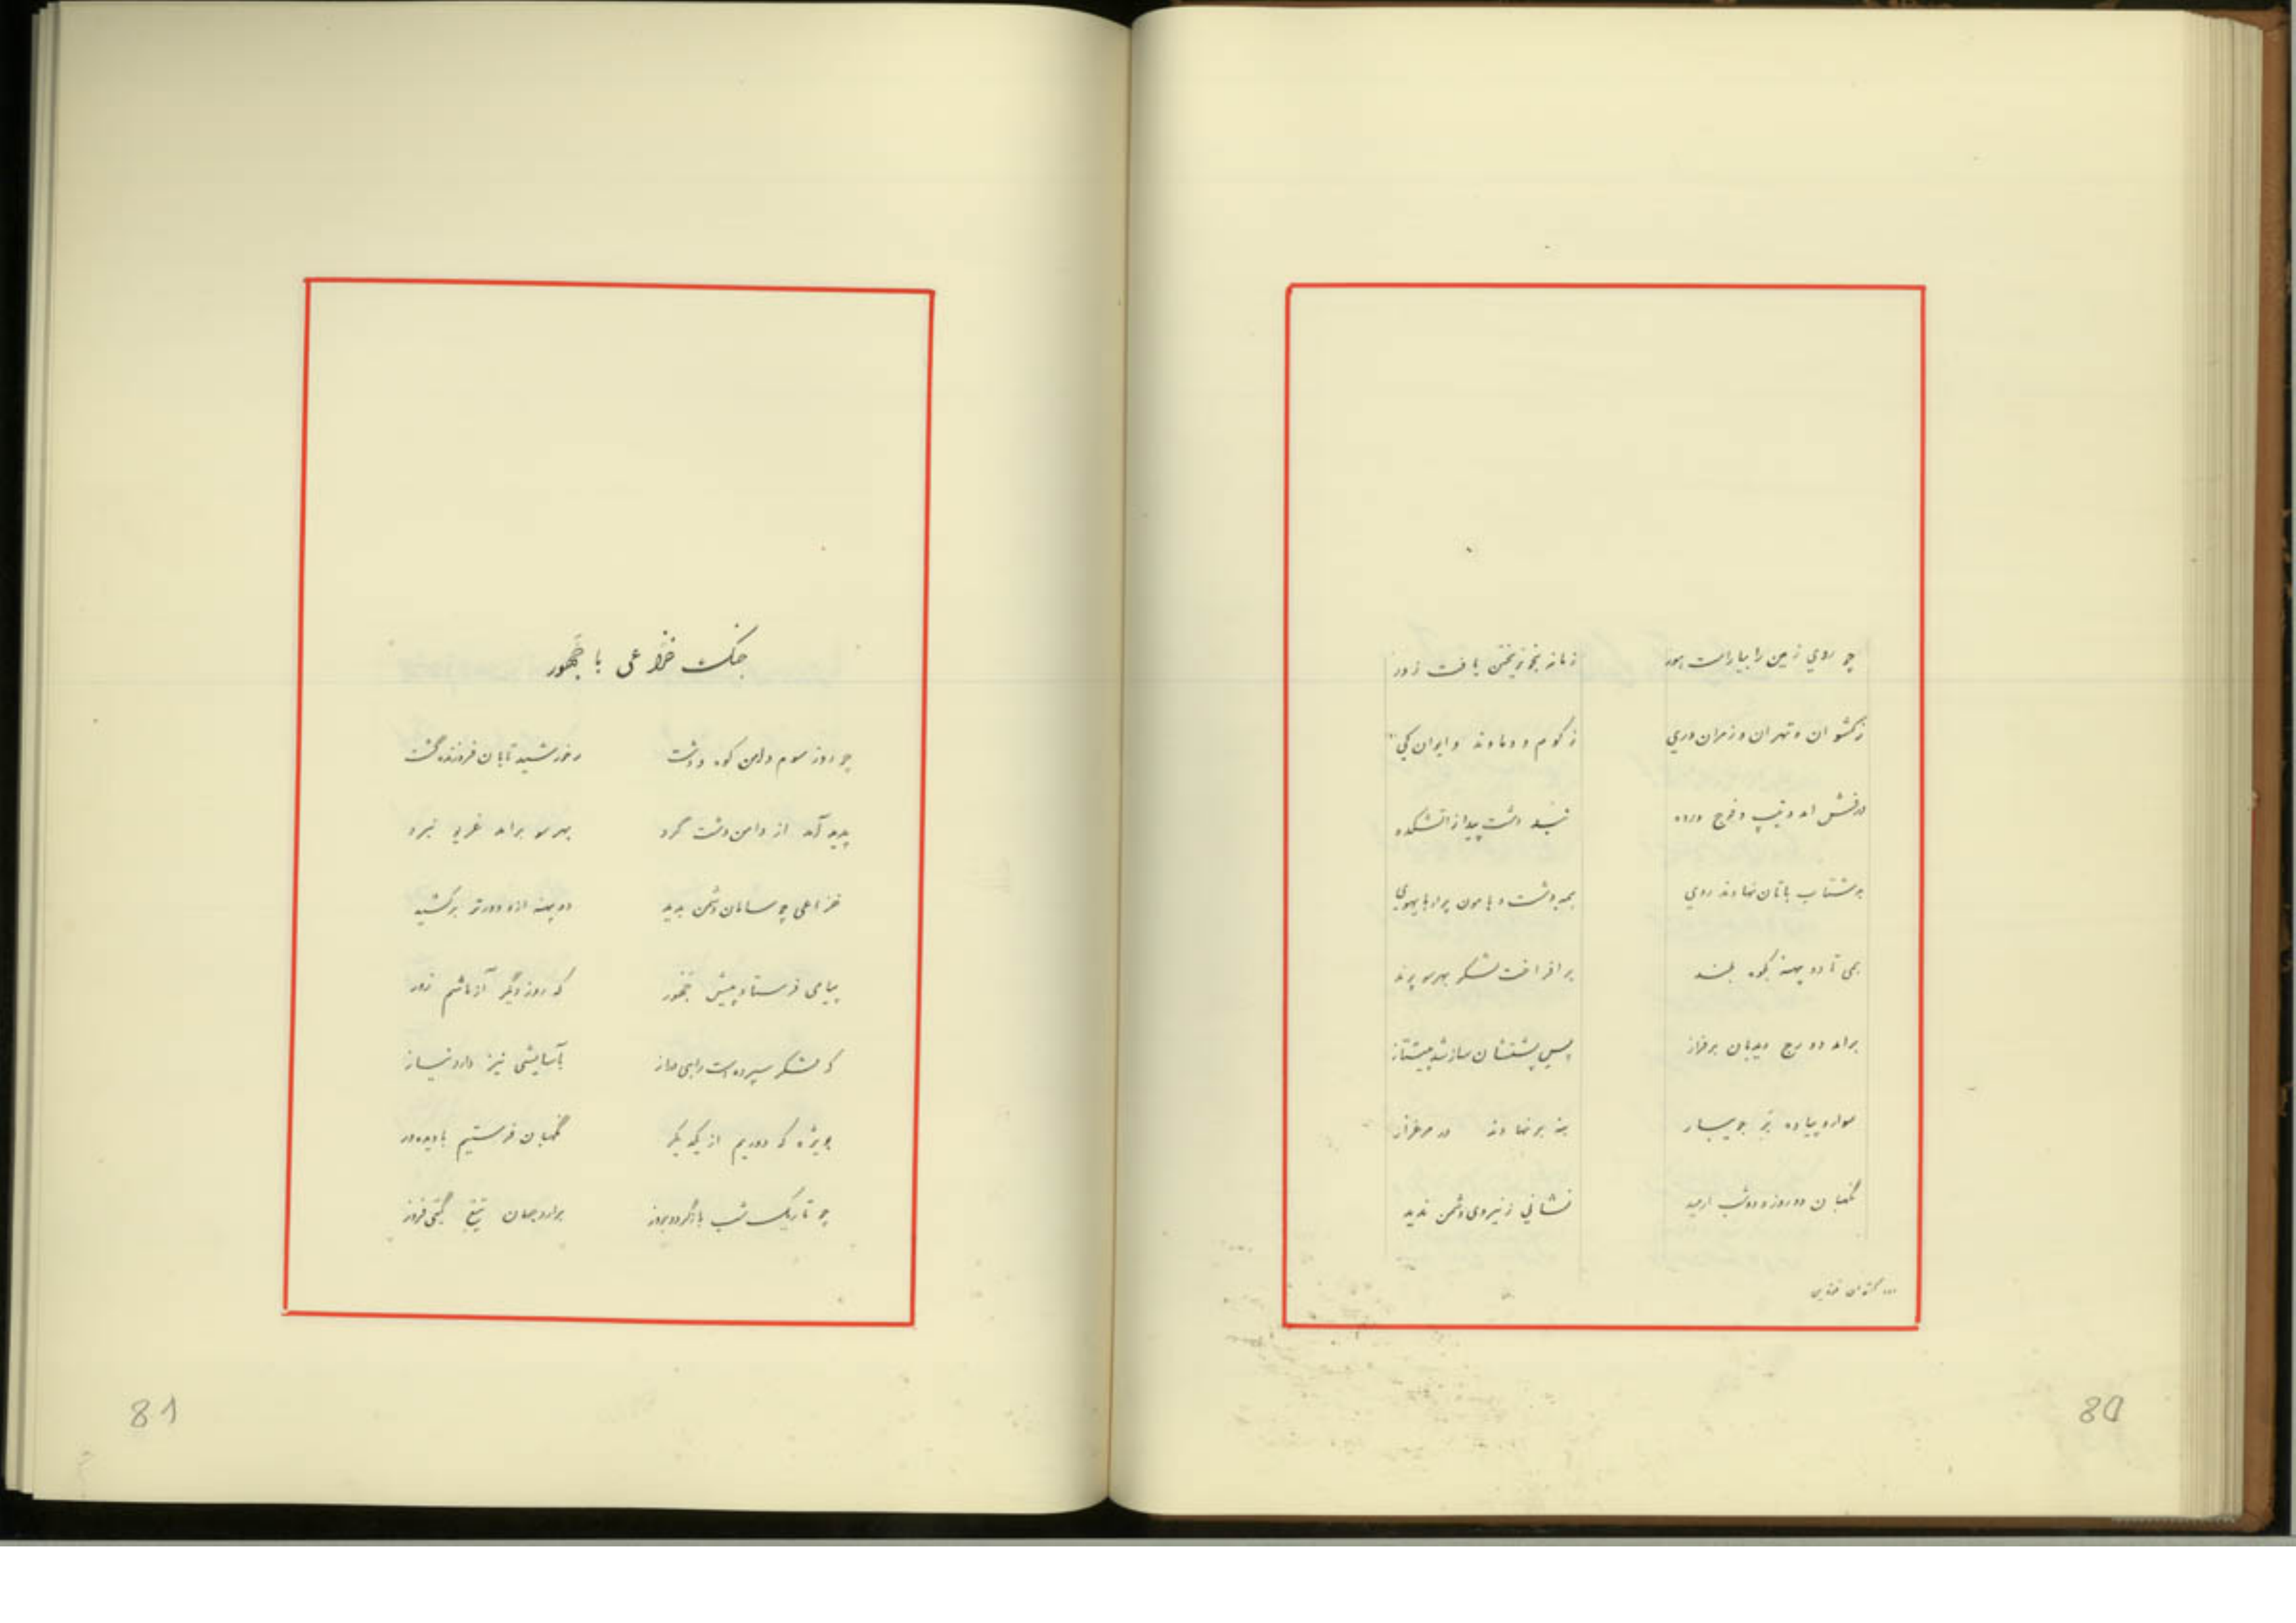 80
چو روی زمین را بیاراست هور زمانه بخونریختن یافت زور
ز کشوان و تهران و زمران وری ز کوم و دماوند و ایوان کی
درفش آمد و تیپ و فوج رده
بشتاب باتان نهاوند روی همه دشت و هامون پر از هایهوی
همی تا دو پهنه بکوه بلند برافراخت لشکر بهر سو پرند
برآمد دو رج دیدبان برفراز پس پشتشان ساز شد پیشتاز
سوار و پیاده بر جویبار بنه بر نهادند در مرغزار
نگهبان دو روز و دو شب آرمید نشانی ز نیروی دشمن ندید
81
جنگ خزاعی با جَهور
چو روز سوم دامن کوه و دشت ز خورشید تابان فروزنده گشت
پدید آمد از دامن دشت گرد بهر سو برآمد غریو نبرد
خزاعی چو سامان دشمن بدید دو پهنه ازو دورتر برکشید
پیامی فرستاد پیش جَهور که روز دگر آزمائیم زور
که لشکر سپرده‌ست راهی دراز بآسایشی نیز دارد نیاز
بویژه که دوریم از یکدیگر نگهبان فرستیم با دیده‌ور
چو تاریک شب بازگردد بروز برآرد جهان تیغ گیتی فروز